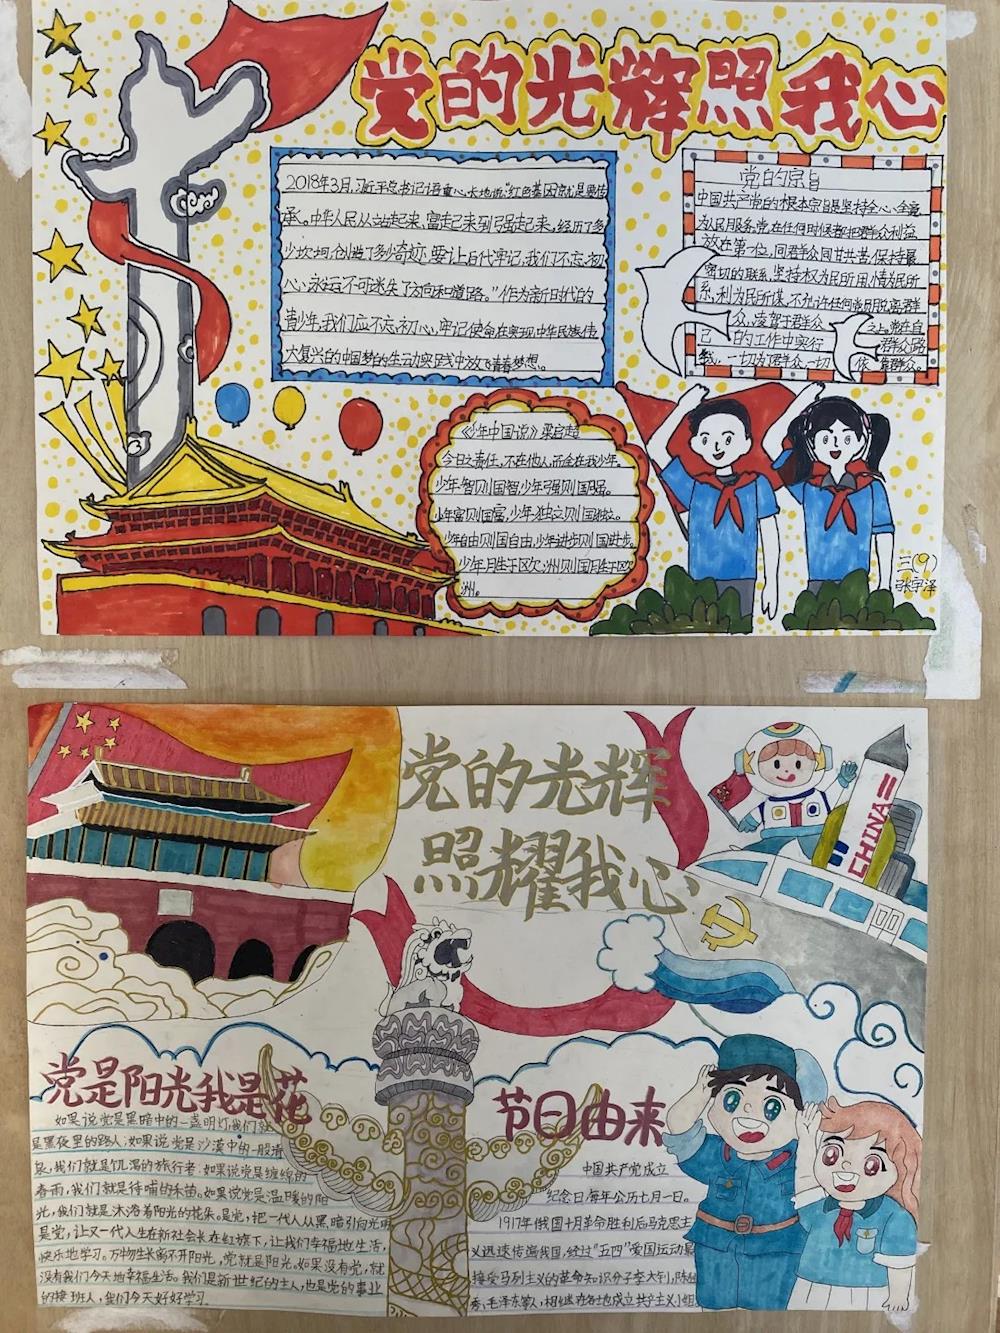 党的光辉照我心
2018年3月,习近平总书记语重心长地说:"红色基因就是要传
承。中华人民从站起来,富起来到强起来,经历了多
少坎坷,创造了多少奇迹,要让后代牢记,我们不忘初
心,永远不可迷失了方向和道路。"作为新时代的
青少年,我们应不忘初心,牢记使命在实现中华民族伟
大复兴的中国梦的生动实践中放飞青春梦想。
党的宗旨
中国共产党的根本宗旨是坚持全心全意
为人民服务。党在任何时候都把群众利益
放在第一位,同群众同甘共苦,保持最
密切的联系,坚持权为民所用,情为民所
系,利为民所谋,不允许任何党员脱离群
众,凌驾于群众之上。党在自
己的工作中实行群众路
线,一切为了群众,一切依靠群众。
《少年中国说》梁启超
今日之责任,不在他人,而全在我少年。
少年智则国智,少年强则国强。
少年富则国富,少年独立则国独立。
少年自由则国自由,少年进步则国进步。
少年月生于区欠;洲则国月生于区欠
洲。
三(9)
张宇泽
党的光辉
照耀我心
CHINA
党是阳光我是花
如果说党是黑暗中的一盏明灯,我们就
是黑夜里的路人;如果说党是沙漠中的一股清
泉,我们就是饥渴的旅行者;如果说党是缠绵的
春雨,我们就是待哺的禾苗。如果说党是温暖的阳
光,我们就是沐浴着阳光的花朵。是党,把一代人从黑暗引向光明
是党,让又一代人生在新社会长在红旗下,让我们幸福地生活,
快乐地学习。万物生长离不开阳光,党就是阳光。如果没有党,就
没有我们今天地幸福生活。我们是新世纪的主人,也是党的事业
的接班人,我们今天好好学习.
节日由来
中国共产党成立
纪念日,每年公历七月一日。
1917年俄国十月革命胜利后马克思主
义迅速传播我国,经过"五四"爱国运动最
接受马列主义的革命知识分子李大钊,陈独
秀,毛泽东等人,相继在各地成立共产主义小组